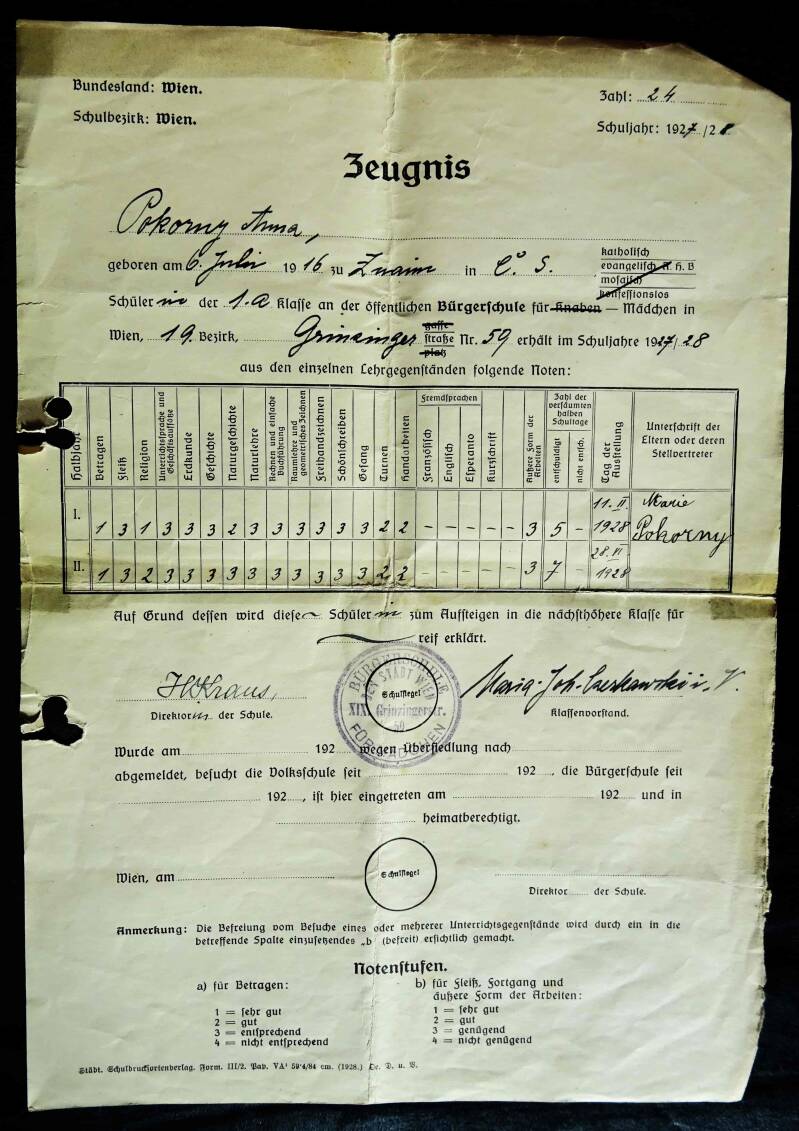 Bundesland: Wien.
Zahl: 24
Schulbezirk: Wien.
Schuljahr: 1927/28
Zeugnis
Pokorny Anna,
geboren am 6. Juli 1916 zu Znaim in Č. S.
katholisch
evangelisch A. H. B
mosaisch
konfessionslos
Schülerin der 1.a Klasse an der öffentlichen Bürgerschule für Knaben — Mädchen in
Wien, 19. Bezirk, Grinzinger gasse straße platz Nr. 59 erhält im Schuljahre 1927/28
aus den einzelnen Lehrgegenständen folgende Noten:
Halbjahr
Betragen
Fleiß
Religion
Unterrichtssprache und Geschäftsaufsätze
Erdkunde
Geschichte
Naturgeschichte
Naturlehre
Rechnen und einfache Buchführung
Raumlehre und geometrisches Zeichnen
Freihandzeichnen
Schönschreiben
Gesang
Turnen
Handarbeiten
Fremdsprachen
Französisch
Englisch
Esperanto
Kurzschrift
Äußere Form der Arbeiten
Zahl der versäumten halben Schultage
entschuldigt
nicht entsch.
Tag der Ausstellung
Unterschrift der Eltern oder deren Stellvertreter
I. 1 3 1 3 3 3 2 3 3 3 3 3 3 2 2 – – – – – 3 5 – 11. II. 1928 Marie Pokorny
II. 1 3 2 3 3 3 3 3 3 3 3 3 3 2 2 – – – – – 3 7 – 28. VI 1928
Auf Grund dessen wird diese Schülerin zum Aufsteigen in die nächsthöhere Klasse für
reif erklärt.
BÜRGERSCHULE
DER STADT WIEN
XIX. Grinzingerstr.
59
FÜR MÄDCHEN
Schulsiegel
HKraus,
Direktorin der Schule.
Klassenvorstand.
Wurde am 192 wegen Übersiedlung nach
abgemeldet, besucht die Volksschule seit 192 , die Bürgerschule seit
192 , ist hier eingetreten am 192 und in
heimatberechtigt.
Wien, am
Schulsiegel
Direktor der Schule.
Anmerkung: Die Befreiung vom Besuche eines oder mehrerer Unterrichtsgegenstände wird durch ein in die
betreffende Spalte einzusetzendes „b (befreit) ersichtlich gemacht.
Notenstufen.
a) für Betragen:
1 = sehr gut
2 = gut
3 = entsprechend
4 = nicht entsprechend
b) für Fleiß, Fortgang und
äußere Form der Arbeiten:
1 = sehr gut
2 = gut
3 = genügend
4 = nicht genügend
Städt. Schuldrucksortenverlag. Form. III/2. Pap. VA¹ 59·4/84 cm. (1928.) De. D. u. V.